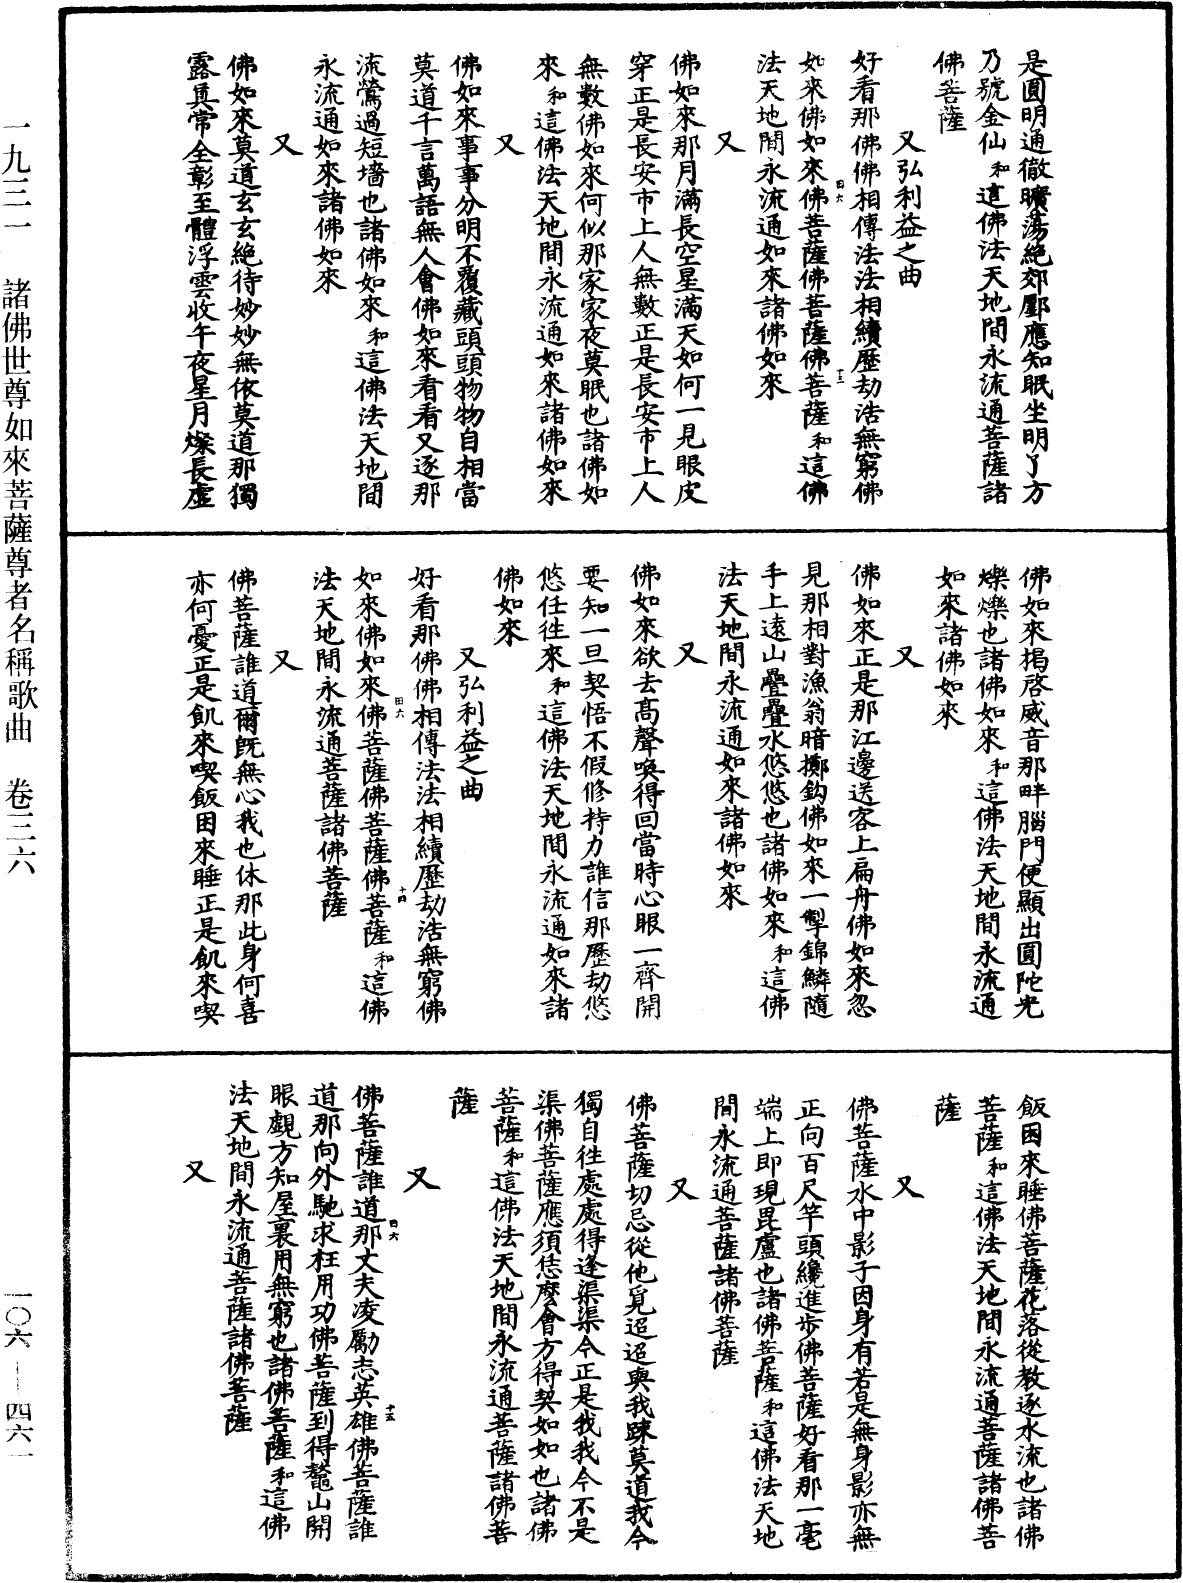 是圓明通徹曠蕩絕郊壥應知眠坐明了方
乃號金仙和這佛法天地間永流通菩薩諸
佛菩薩
又弘利益之曲
好看那佛佛相傳法法相續歷劫浩無窮佛
如來佛如來佛菩薩佛菩薩佛菩薩和這佛
田六
十三
法天地間永流通如來諸佛如來
又
佛如來那月滿長空星滿天如何一見眼皮
穿正是長安市上人無數正是長安市上人
無數佛如來何似那家家夜莫眠也諸佛如
來和這佛法天地間永流通如來諸佛如來
又
佛如來事事分明不覆藏頭頭物物自相當
莫道千言萬語無人會佛如來看看又逐那
流鶯過短墻也諸佛如來和這佛法天地間
永流通如來諸佛如來
又
佛如來莫道玄玄絕待妙妙無依莫道那獨
露真常全彰至體浮雲收午夜星月燦長虛
佛如來揭啓威音那畔腦門便顯出圓陀光
爍爍也諸佛如來和這佛法天地間永流通
如來諸佛如來
又
佛如來正是那江邊送客上扁舟佛如來忽
見那相對漁翁暗擲鈎佛如來一掣錦鱗隨
手上遠山疊疊水悠悠也諸佛如來和這佛
法天地間永流通如來諸佛如來
又
佛如來欲去高聲喚得回當時心眼一齊開
要知一旦契悟不假修持力誰信那歷劫悠
悠任往來和這佛法天地間永流通如來諸
佛如來
又弘利益之曲
好看那佛佛相傳法法相續歷劫浩無窮佛
如來佛如來佛菩薩佛菩薩佛菩薩和這佛
田六
十四
法天地間永流通菩薩諸佛菩薩
又
佛菩薩誰道爾旣無心我也休那此身何喜
亦何憂正是飢來喫飯困來睡正是飢來喫
飯困來睡佛菩薩花落從教逐水流也諸佛
菩薩和這佛法天地間永流通菩薩諸佛菩
薩
又
佛菩薩水中影子因身有若是無身影亦無
正向百尺竿頭纔進步佛菩薩好看那一毫
端上即現毘盧也諸佛菩薩和這佛法天地
間永流通菩薩諸佛菩薩
又
佛菩薩切忌從他覓迢迢與我踈莫道我今
獨自往處處得逢渠渠今正是我我今不是
渠佛菩薩應須恁麼會方得契如如也諸佛
菩薩和這佛法天地間永流通菩薩諸佛菩
薩
又
佛菩薩誰道那丈夫凌勵志英雄佛菩薩誰
田六
十五
道那向外馳求枉用功佛菩薩到得鼇山開
眼覷方知屋裏用無窮也諸佛菩薩和這佛
法天地間永流通菩薩諸佛菩薩
又
一九三一 諸佛世尊如來菩薩尊者名稱歌曲 卷三六
一〇六—四六一